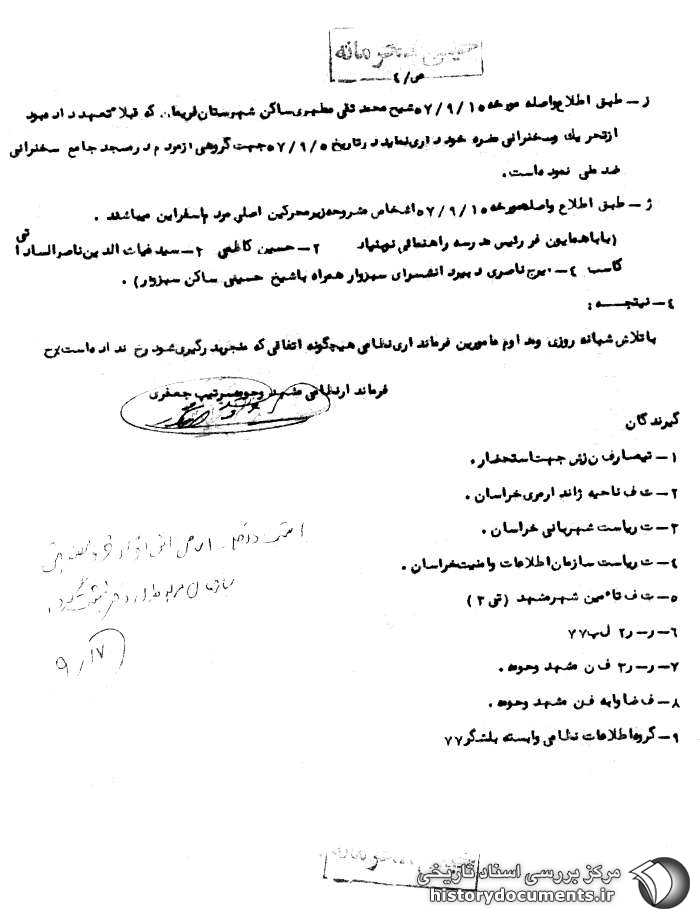 خیلی محرمانه
ص/٤
ز – طبق اطلاع واصله مورخه ٥٧/٩/١٥ شیخ محمد تقی مطهری ساکن شهرستان فریمان که قبلا تعهد داده بود
از تحریک وسخنرانی مضره خود داری نماید در تاریخ ٥٧/٩/٥ جهت گروهی از مردم در مسجد جامع سخنرانی
ضد ملی نموده است.
ژ – طبق اطلاع واصله مورخه ٥٧/٩/١٥ اشخاص مشروحه زیر محرکین اصلی مردم اسفراین میباشند .
(بابا همایون فر رئیس مدرسه راهنمائی نوبنیاد ٢– حسین کاظمی ٣– سید غیاث الدین ناصر الساداتی
کاسب ٤– ایرج ناصری دبیر دانشسرای سبزوار همراه باشیخ حسینی ساکن سبزوار) .
٤– نتیجـــه :
باتلاش شبانه روزی ومداوم مامورین فرمانداری نظامی هیچگونه اتفاقی که منجر بدرگیری شود رخ نداده است
فرماندار نظامی مشهد وحومه سرتیپ جعفری
گیرندگان
١– تیمسار ف ن ز ش جهت استحضار .
٢– ت ف ناحیه ژاندارمری خراسان .
٣– ت ریاست شهربانی خراسان .
٤– ت ریاست سازمان اطلاعات وامنیت خراسان .
٥– ت ف تامین شهر مشهد (تی ٢)
٦– ر– ر٢ ل پ ٧٧
٧– ر– ر٣ ف ن مشهد وحومه .
٨– ف ضاوابه فـن مشهد وحومه .
٩– گروه اطلاعات نظامی وابسته بلشگر ٧٧
٩/١٧
خیلی محرمانه
مرکز بررسی اسناد تاریخی
historydocuments.ir